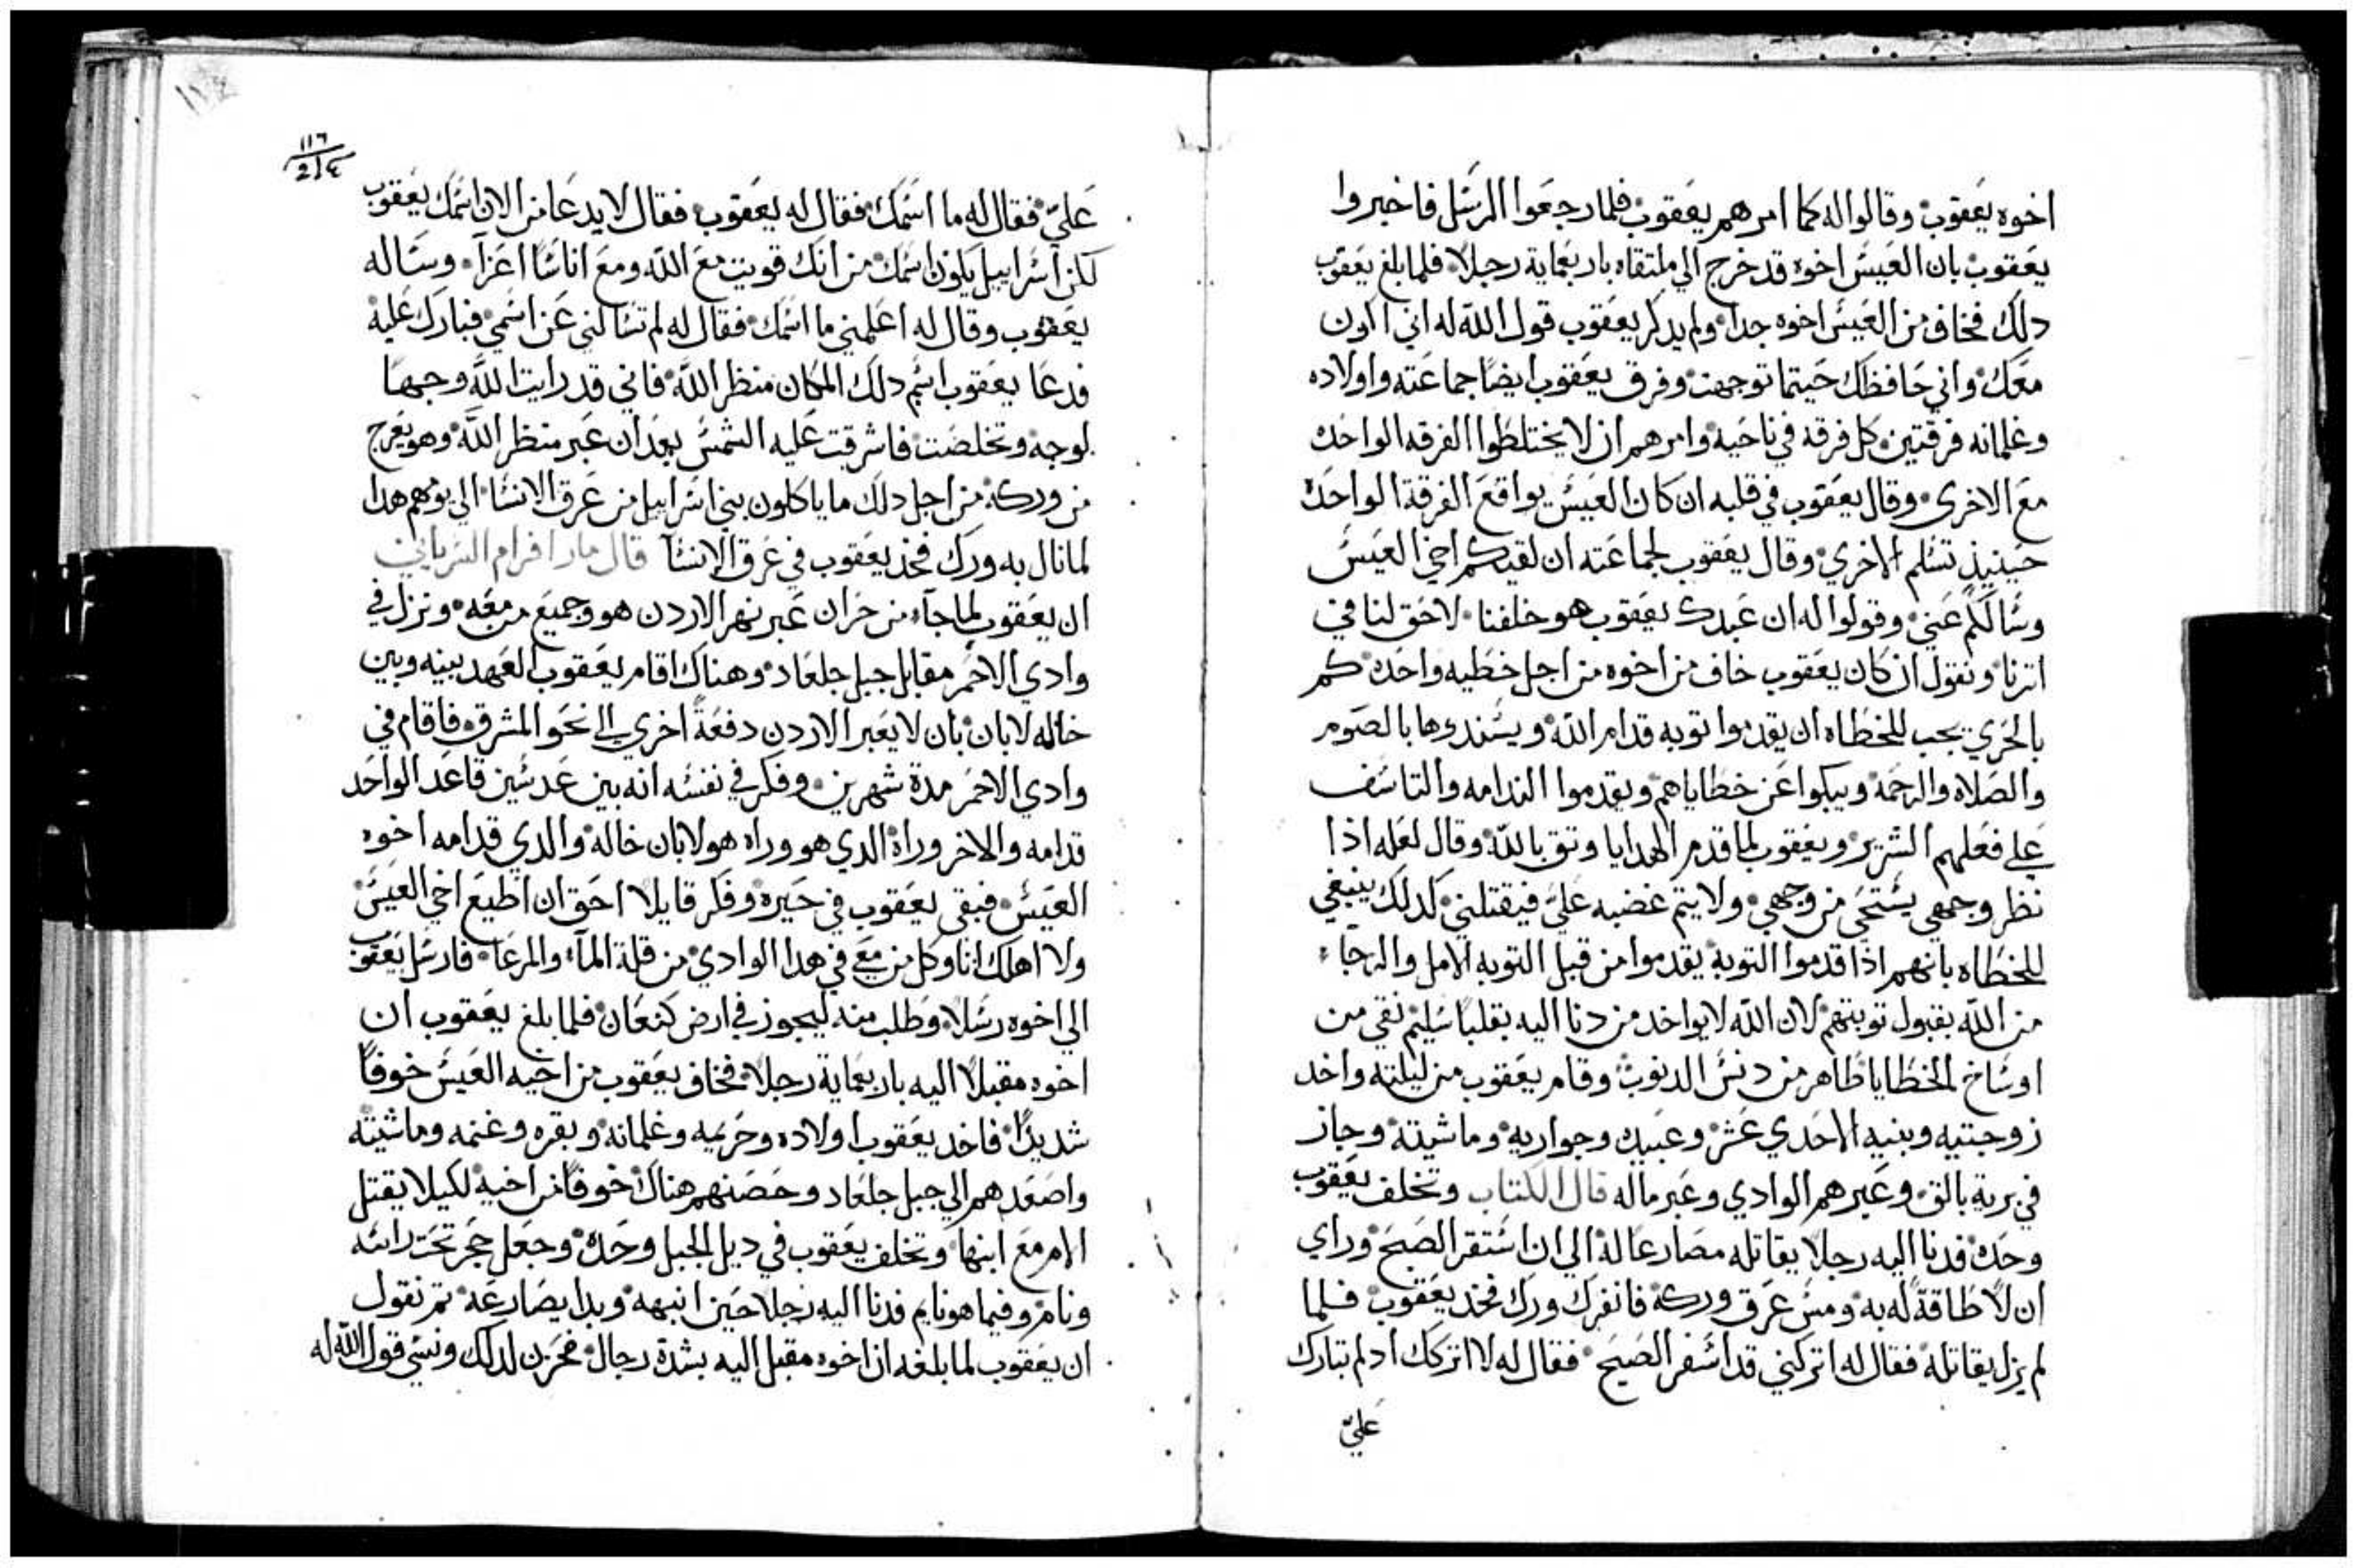 اخوه يعقوب وقالوا له كما امرهم يعقوب فلما رجعوا الرسل فاخبروا
يعقوب بان العيس اخوه قد خرج الي ملتقاه باربعماية رجلا فلما بلغ يعقوب
دلك فخاف من العيس اخوه جدا ولم يدكر يعقوب قول الله له اني اكون
معك واني حافظك حيتما توجهت وفرق يعقوب ايضا جماعته واولاده
وغلمانه فرقتين كل فرقه في ناحيه وامرهم ان لا يختلطوا الفرقه الواحده
مع الاخرى وقال يعقوب في قلبه ان كان العيس يواقع الفرقة الواحده
حينيذ تسلم الاخري وقال يعقوب لجماعته ان لقيكم اخي العيس
وسالكم عني وقولوا له ان عبدك يعقوب هو خلفنا لاحق لنا في
اترنا ونقول ان كان يعقوب خاف من اخوه من اجل خطيه واحده كم
بالحري يجب للخطاه ان يقدموا توبه قدام الله ويسندوها بالصوم
والصلاه والرحمة ويبكوا عن خطاياهم ويقدموا الندامه والتاسف
علي فعلهم الشرير ويعقوب لما قدم الهدايا وتق بالله وقال لعله اذا
نظر وجهي يستحي من وجهي ولا يتم غضبه علي فيقتلني كدلك ينبغي
للخطاه بانهم اذا قدموا التوبة يقدموا من قبل التوبه الامل والرجاء
من الله بقبول توبتهم لان الله لا يواخد من دنا اليه بقلبا سليم نقي من
اوساخ الخطايا طاهر من دنس الدنوب وقام يعقوب من ليلته واخد
زوجتيه وبنيه الاحدي عشر وعبيده وجواريه وماشيته وجاز
في برية بالق وعبرهم الوادي وعبر ماله قال الكتاب وتخلف يعقوب
وحده فدنا اليه رجلا يقاتله مصارعا له الي ان استقر الصبح وراي
ان لا طاقة له به ومس عرق وركه فانفرك ورك فخد يعقوب فلما
لم يزل يقاتله فقال له اتركني قد اسفر الصبح فقال له لا اتركك ادلم تبارك
علي
١١٦
علي فقال له ما اسمك فقال له يعقوب فقال لا يدعا من الان اسمك يعقوب
لكن اسراييل يكون اسمك من انك قويت مع الله ومع اناسا اعزآ وساله
يعقوب وقال له اعلمني ما اسمك فقال له لم تسالني عن اسمي فبارك عليه
فدعا يعقوب اسم دلك المكان منظر الله فاني قد رايت الله وجها
لوجه وتخلصت فاشرقت عليه الشمس بعد ان عبر منظر الله وهو يعرج
من وركه من اجل دلك ما ياكلون بني اسراييل من عرق الانسا الي يومهم هدا
لما نال به ورك فخد يعقوب في عرق الانسآ قال مار افرام السرياني
ان يعقوب لما جآء من حران عبر نهر الاردن هو وجميع من معه ونزل في
وادي الاحمر مقابل جبل جلعاد وهناك اقام يعقوب العهد بينه وبين
خاله لابان بان لا يعبر الاردن دفعة اخري الي نحو المشرق فاقام في
وادي الاحمر مدة شهرين وفكر في نفسه انه بين عدسين قاعد الواحد
قدامه والاخر وراه الدي هو وراه هو لابان خاله والدي قدامه اخوه
العيس فبقى يعقوب في حيره وفكر قايلا احق ان اطيع اخي العيس
ولا اهلك انا وكل من معي في هدا الوادي من قلة المآء والمرعا فارسل يعقوب
الي اخوه رسلا وطلب منه ليجوز في ارض كنعان فلما بلغ يعقوب ان
اخوه مقبلا اليه باربعماية رجلا فخاف يعقوب من اخيه العيس خوفا
شديدا فاخد يعقوب اولاده وحريمه وغلمانه وبقره وغنمه وماشيته
واصعدهم الي جبل جلعاد وحصنهم هناك خوفا من اخيه لكيلا يقتل
الام مع ابنها وتخلف يعقوب في ديل الجبل وحده وجعل حجر تحت راسه
ونام وفيما هو نايم فدنا اليه رجلا حين انبهه وبدا يصارعه تم نقول
ان يعقوب لما بلغه ان اخوه مقبل اليه بشدة رجال فحزن لدلك ونسي قول الله له